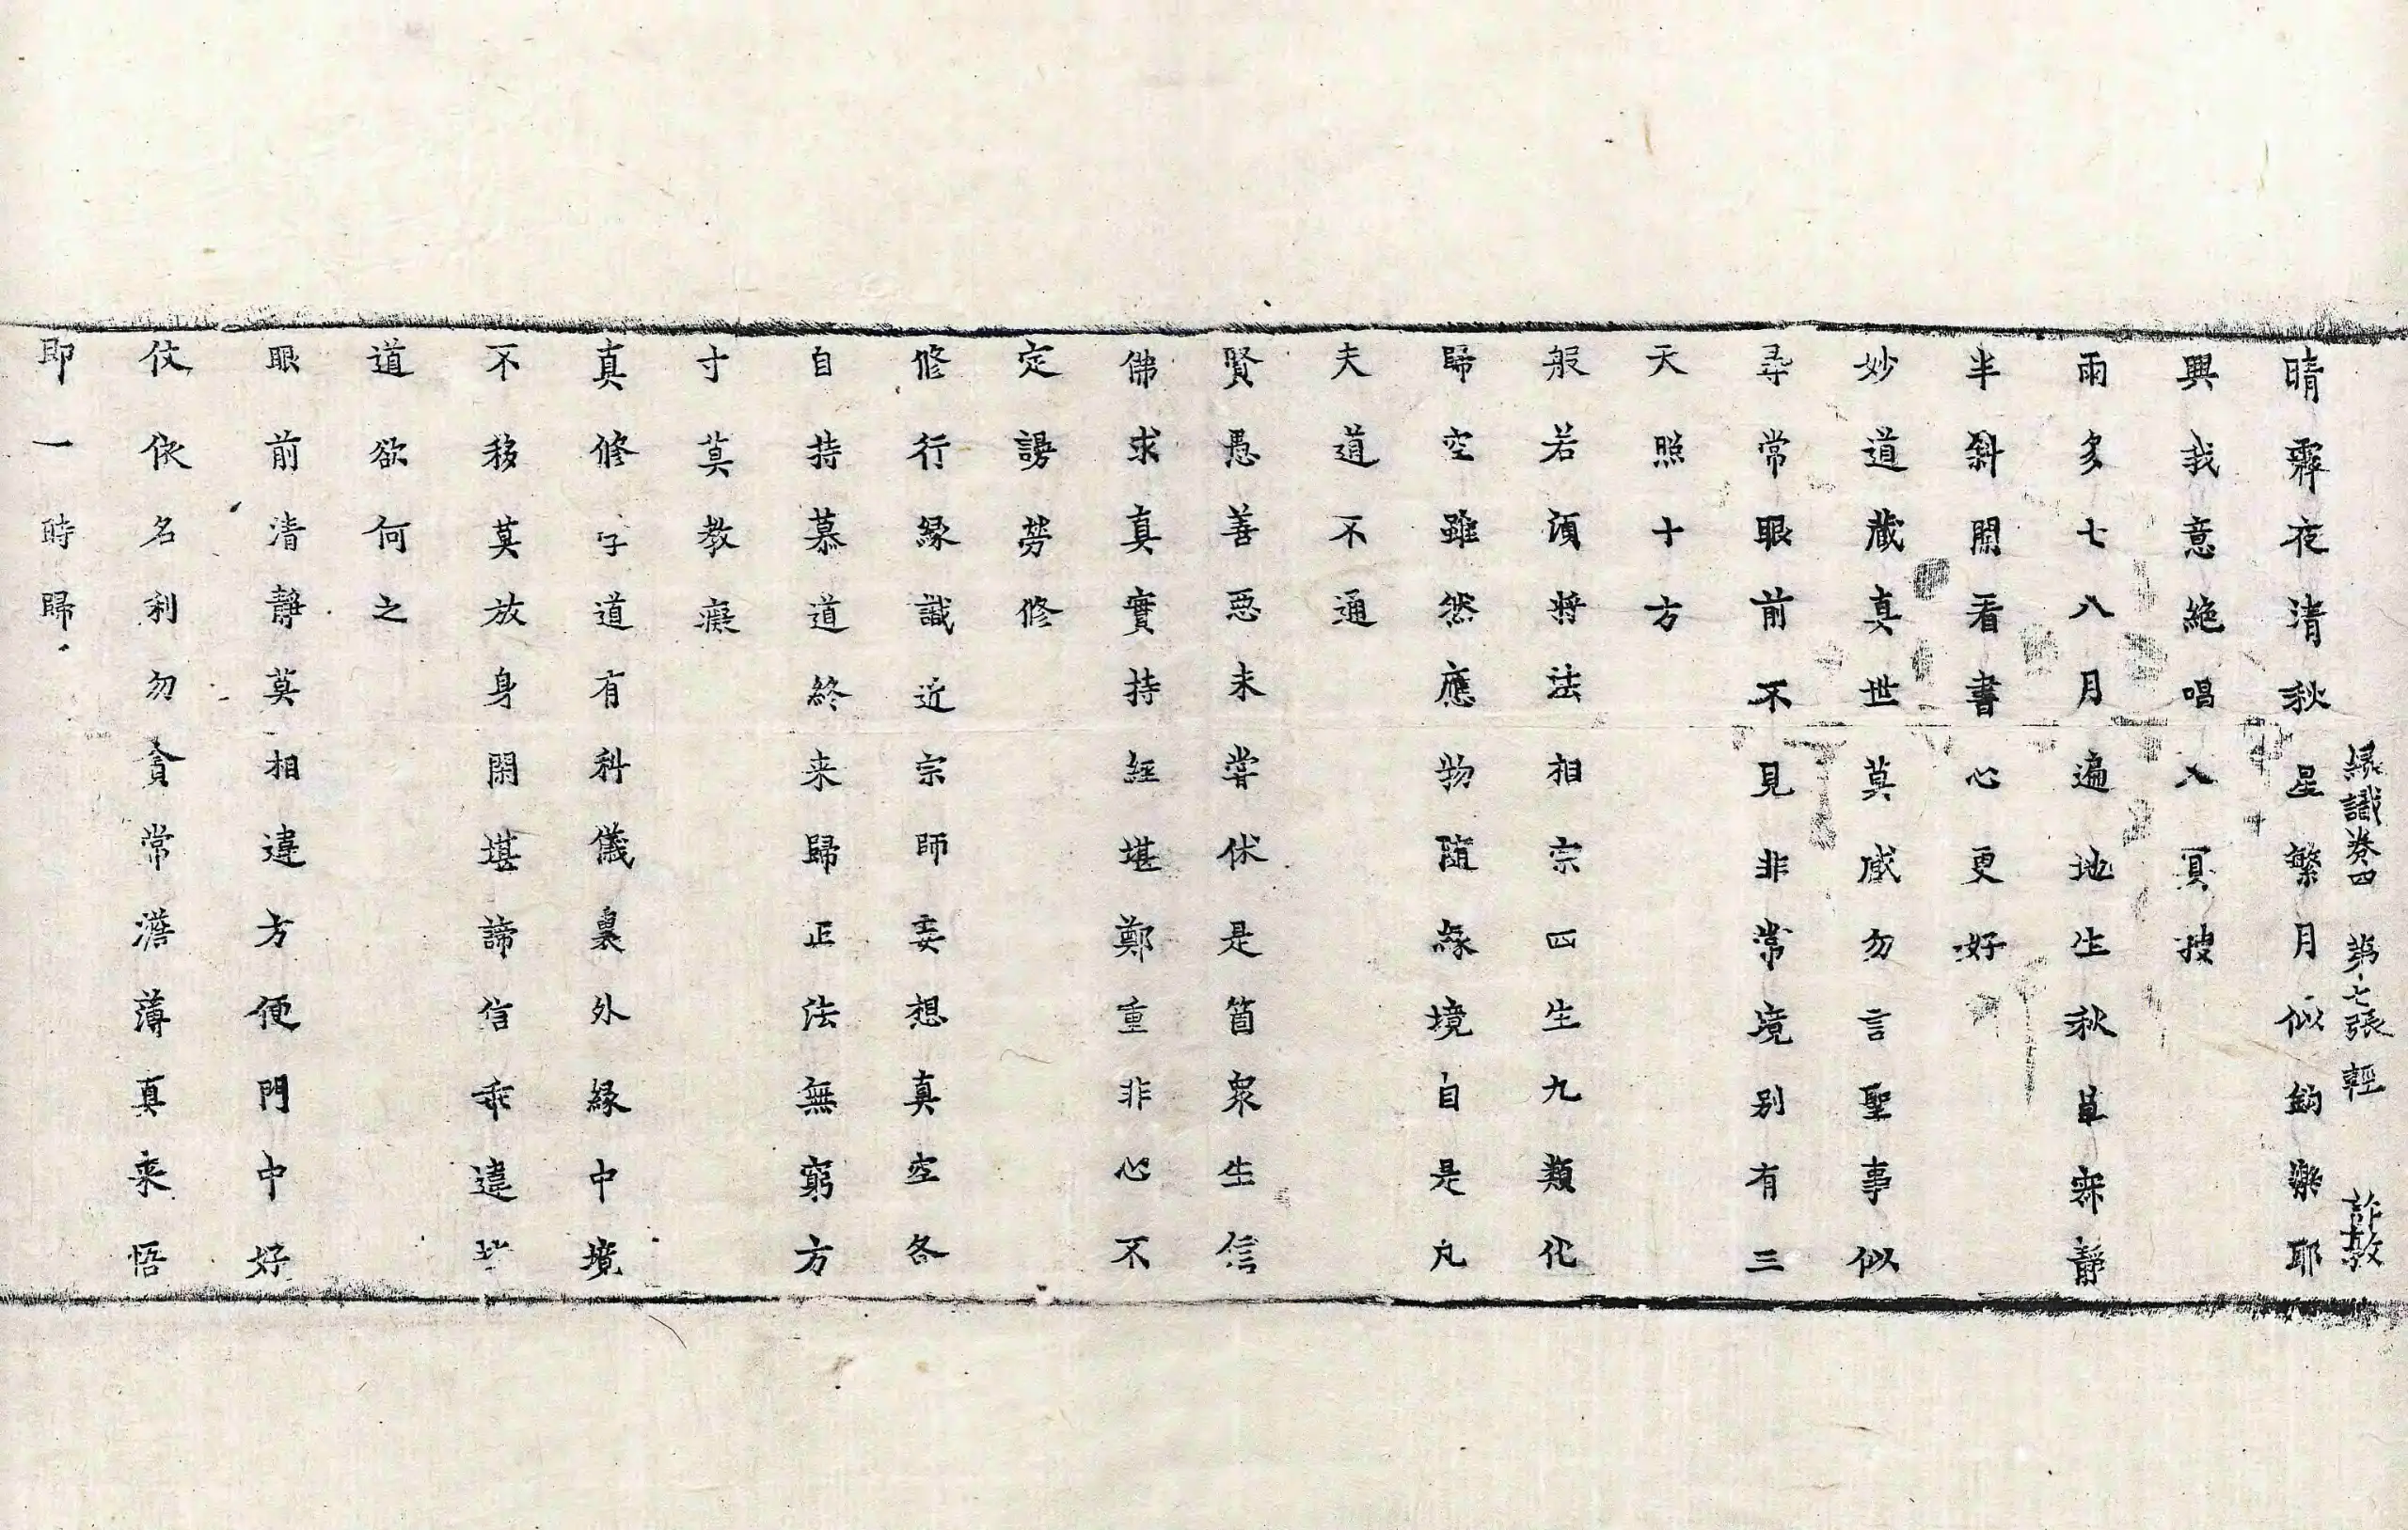 緣識卷四 第七張 輕 訡敦
晴霽夜清秋星繁月似鈎樂耶
興我意絶唱入冥搜
雨多七八月遍地生秋草寂靜
半斜開看書心更好
妙道蔵真世莫感勿言聖事似
尋常眼前不見非常境别有三
天照十方
般若須將法相宗四生九類化
歸空雖然應物随緣境自是凡
夫道不通
賢愚善惡未嘗休是箇衆生信
佛求真實持經堪鄭重非心不
定謾勞修
修行緣識近宗師妄想真空各
自持慕道終来歸正法無窮方
寸莫教癡
真修子道有科儀裏外緣中境
不移莫放身閑堪諦信乖違其
道欲何之
眼前清静莫相違方便門中好
伏依名利勿貪常澹薄真来悟
即一時歸